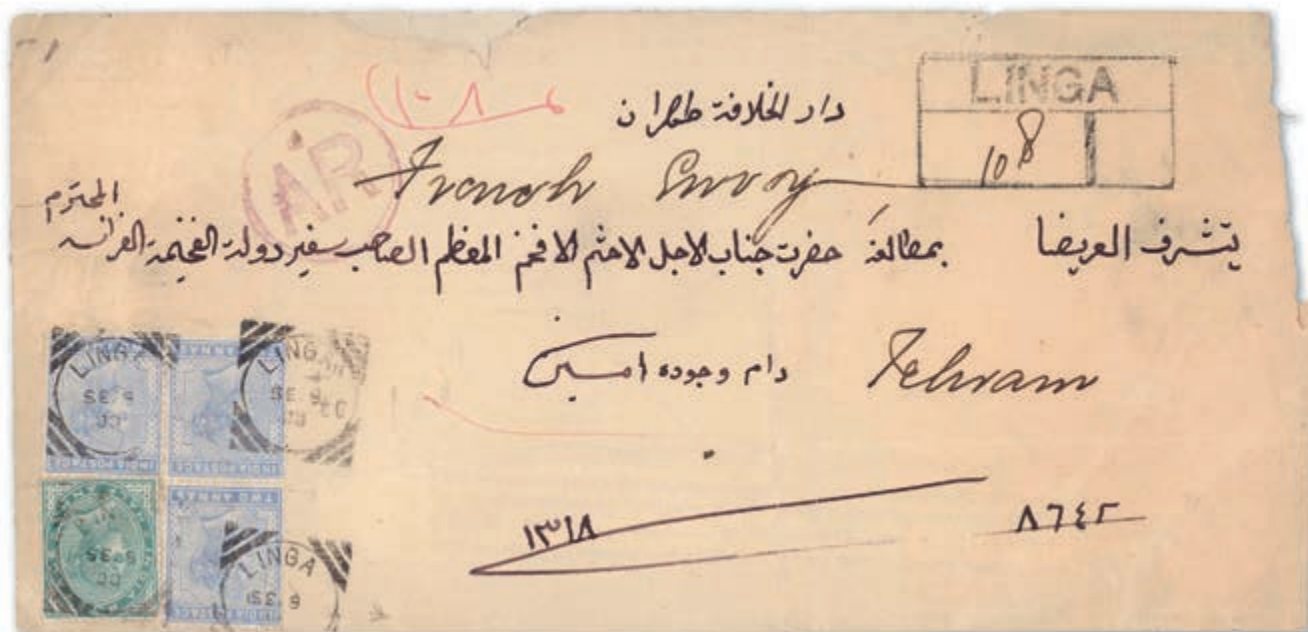 LINGA
108
١٠٨
دار الخلافة طهران
AR
French Envoy
المحترم
يتشرف العريضا بمطالعة حضرت جناب الاجل الاحشم الافخم المعظم الصاحب سفير دولة الفخيمة الفرانسه
دام وجوده امــين Tehran
١٣١٨
٨٦٤٢
LINGA
SE 6
00
LINGA
SE 6
00
LINGA
SE 6
INDIA POSTAGE
INDIA POSTAGE
TWO ANNAS